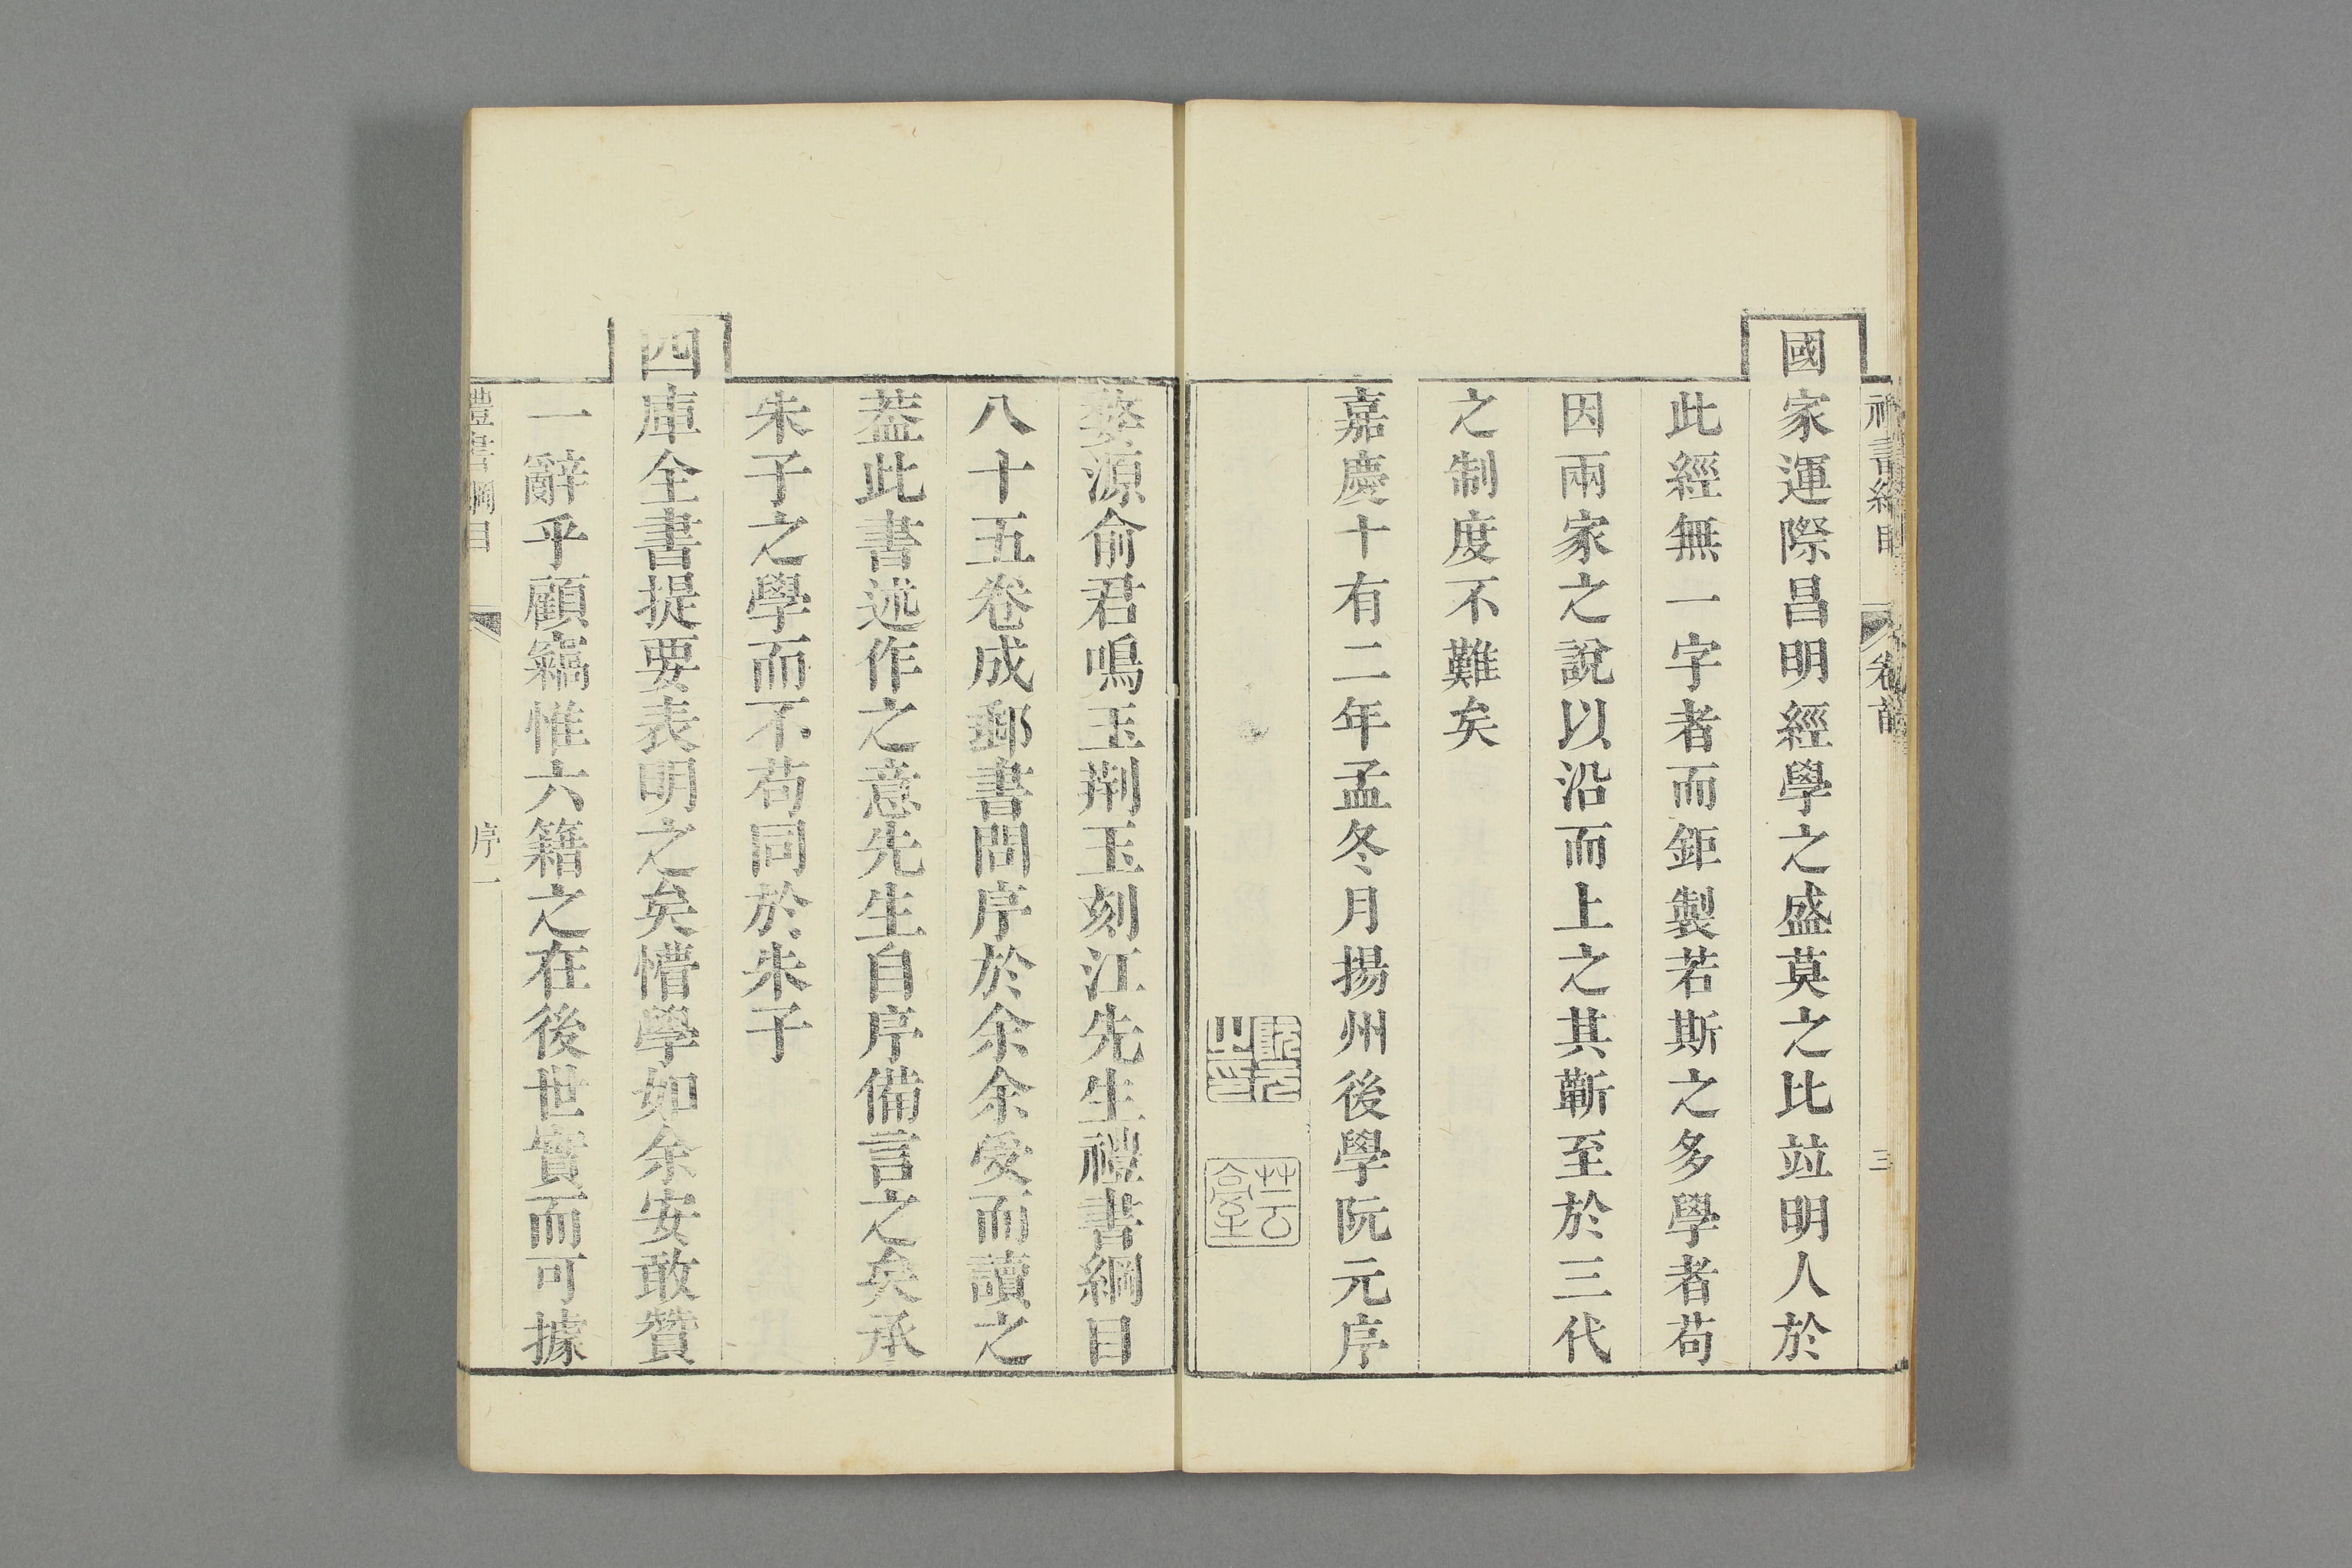 禮書綱目 卷首 三
國家運際昌明經學之盛莫之比竝明人於
此經無一字者而鉅製若斯之多學者苟
因兩家之說以沿而上之其蘄至於三代
之制度不難矣
嘉慶十有二年孟冬月揚州後學阮元序
阮元之印
芸臺
婺源俞君鳴玉荆玉刻江先生禮書綱目
八十五卷成郵書問序於余余受而讀之
葢此書述作之意先生自序備言之矣承
朱子之學而不苟同於朱子
四庫全書提要表明之矣懵學如余安敢贊
一辭乎顧竊惟六籍之在後世實而可據
禮書綱目 序 一